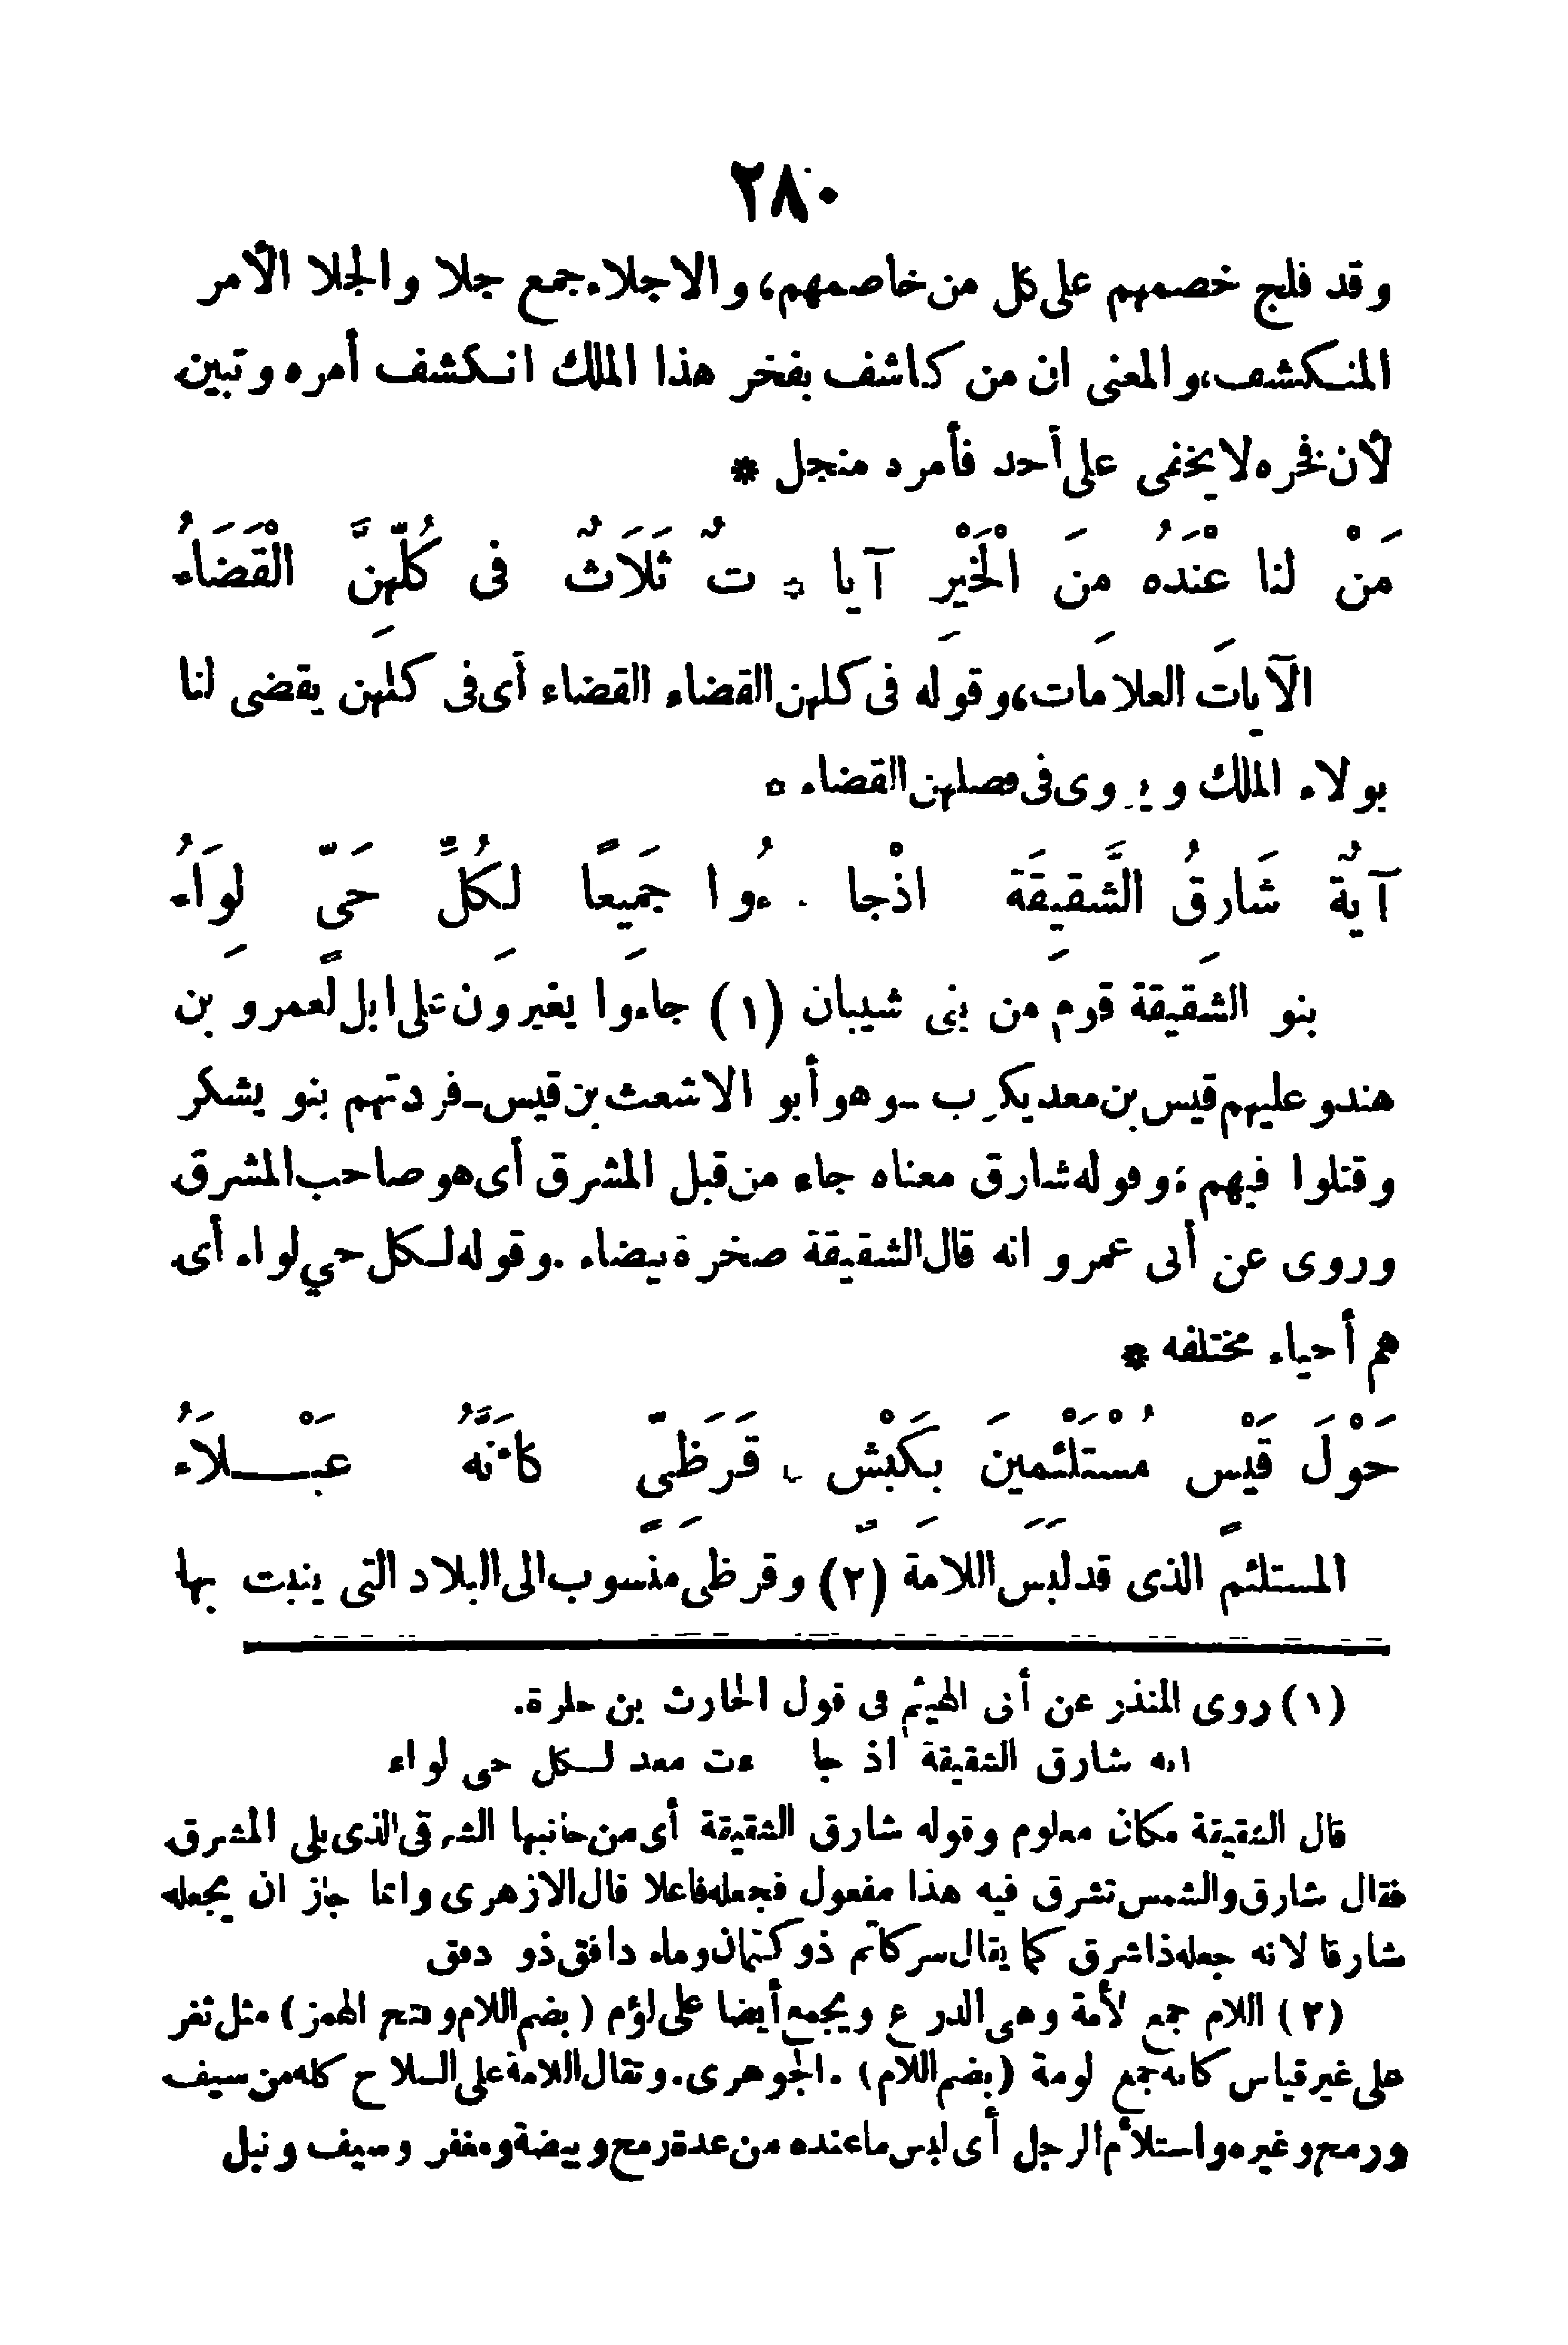 ٢٨٠
وقد فلج خصمهم على كل من خاصمهم، والاجلاء جمع جلا والجلا الأمر
المنكشف، والمعنى ان من كاشف بفخر هذا الملك انكشف أمره وتبين
لأن فخره لا يخفى على أحد فأمره منجل *
مَنْ لنا عنْدَهُ مِنَ الْخَيْرِ آيا * تٌ ثَلَاثٌ فى كُلّهِنَّ الْقَضَاءُ
الآيات العلامات، وقوله فى كلهن القضاء القضاء أى فى كلهن يقضى لنا
بولاء الملك ويروى فى فصلهن القضاء *
آيَةٌ شَارِقُ الشَّقِيقَة اذْجا ءُوا جَمِيعًا لِكُلِّ حَىّ لِوَاءُ
بنو الشقيقة قوم من بنى شيبان (١) جاءوا يغيرون على ابل لعمرو بن
هند وعليهم قيس بن معد يكرب ـ وهو أبو الاشعث بن قيس ـ فردتهم بنو يشكر
وقتلوا فيهم ؛ وقوله شارق معناه جاء من قبل المشرق أى هو صاحب المشرق
وروى عن أبى عمرو انه قال الشقيقة صخرة بيضاء . وقوله لكل حي لواء أى
هم أحياء مختلفه *
حَوْلَ قَيْسٍ مُسْتَلْئِمِينَ بِكَبْشٍ قَرَظِىٍّ كأنَّهُ عَبْلاَءُ
المستلئم الذى قد لبس اللامة (٢) وقرظى منسوب الى البلاد التى ينبت بها
(١) روى المنذر عن أبى الهيثم فى قول الحارث بن حلزة.
انه شارق الشقيقة اذ جا ءت معد لكل حى لواء
قال الشقيقة مكان معلوم وقوله شارق الشقيقة أى من جانبها الشرقى الذى يلى المشرق
فقال شارق والشمس تشرق فيه هذا مفعول فجعله فاعلا قال الازهرى وانما جاز ان يجعله
شارقا لانه جعله ذا شرق كما يقال سر كاتم ذو كتمان وماء دافق ذو دفق
(٢) اللام جمع لأمة وهى الدرع ويجمع أيضا على لؤم (بضم اللام وفتح الهمز) مثل نغر
على غير قياس كانه جمع لومة (بضم اللام) . الجوهرى. وتقال اللامة على السلاح كله من سيف
ورمح وغيره واستلأم الرجل أى لبس ما عنده من عدة رمح وبيضة ومغفر وسيف ونبل